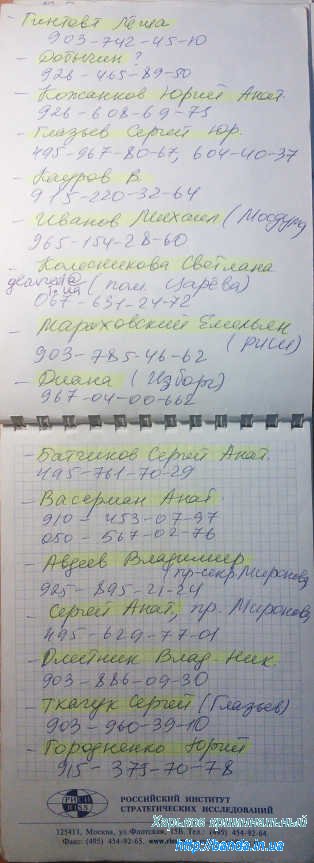 - Гинтовт Лёша
903-742-45-10
- Добычин ?
926-465-89-50
- Кожанков Юрий Анат.
926-608-69-73
- Глазьев Сергей Юр.
495-967-80-67, 604-40-37
- Кауров В.
915-220-32-64
- Иванов Михаил (Мосдума)
965-154-28-60
- Колесникова Светлана
(пом. Царёва)
067-631-24-72
- Марховский Емельян
(РИСИ)
903-785-46-62
- Диана (Изборс)
967-04-00-662
- Батчиков Сергей Анат.
495-761-70-29
- Васерман Анат.
910-453-07-97
050-567-02-76
- Авдеев Владимир
(пр-секр. Миронов)
925-895-21-24
- Сергей Анат, пр. Миронов,
495-629-77-01
- Олейник Влад. Ник.
903-886-09-30
- Ткачук Сергей (Глазьев)
903-960-39-10
- Городненко Юрий
915-373-70-78
РОССИЙСКИЙ ИНСТИТУТ
СТРАТЕГИЧЕСКИХ ИССЛЕДОВАНИЙ
Харьков криминальный
125413, Москва, ул. Флотская, 15В. Тел.: (495) 454-92-64.
Факс: (495) 454-92-65.